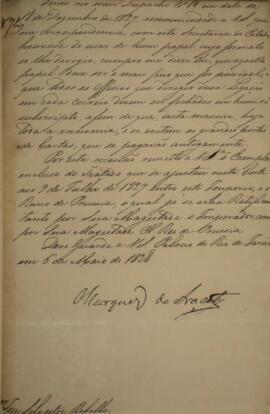 Tendo no meu Despacho Nº 18 em data de
18 de Dezembro de 1827, recommendado a V. S. que
na correspondencia com esta Secretaria de Estado
houvesse de usar de hum papel cujo formato
se lhe designou, cumpre me dizer lhe, que aquelle
papel deve ser o mais fino que for possivel, e
que todos os Officios que dirigir essa Legação
em cada correio devem ser fechados em hum só
subscripto afim de que, desta maneira, haja
toda a economia, e se evitem os grandes portes
de Cartas, que se pagavão antigamente.
Por esta occasião remetto a V. S. o Exemplar
incluso do Tratado que se ajustou nesta Corte
aos 9 de Julho de 1827 entre este Imperio e o
Reino de Prussia, o qual já se acha Ratificado
tanto por Sua Magestade o Imperador, como
por Sua Magestade El Rei de Prussia
Deos Guarde a V. S. Palacio do Rio de Janeiro
em 6 de Maio de 1828
Marquez do Aracaty
Silvestre Rebello